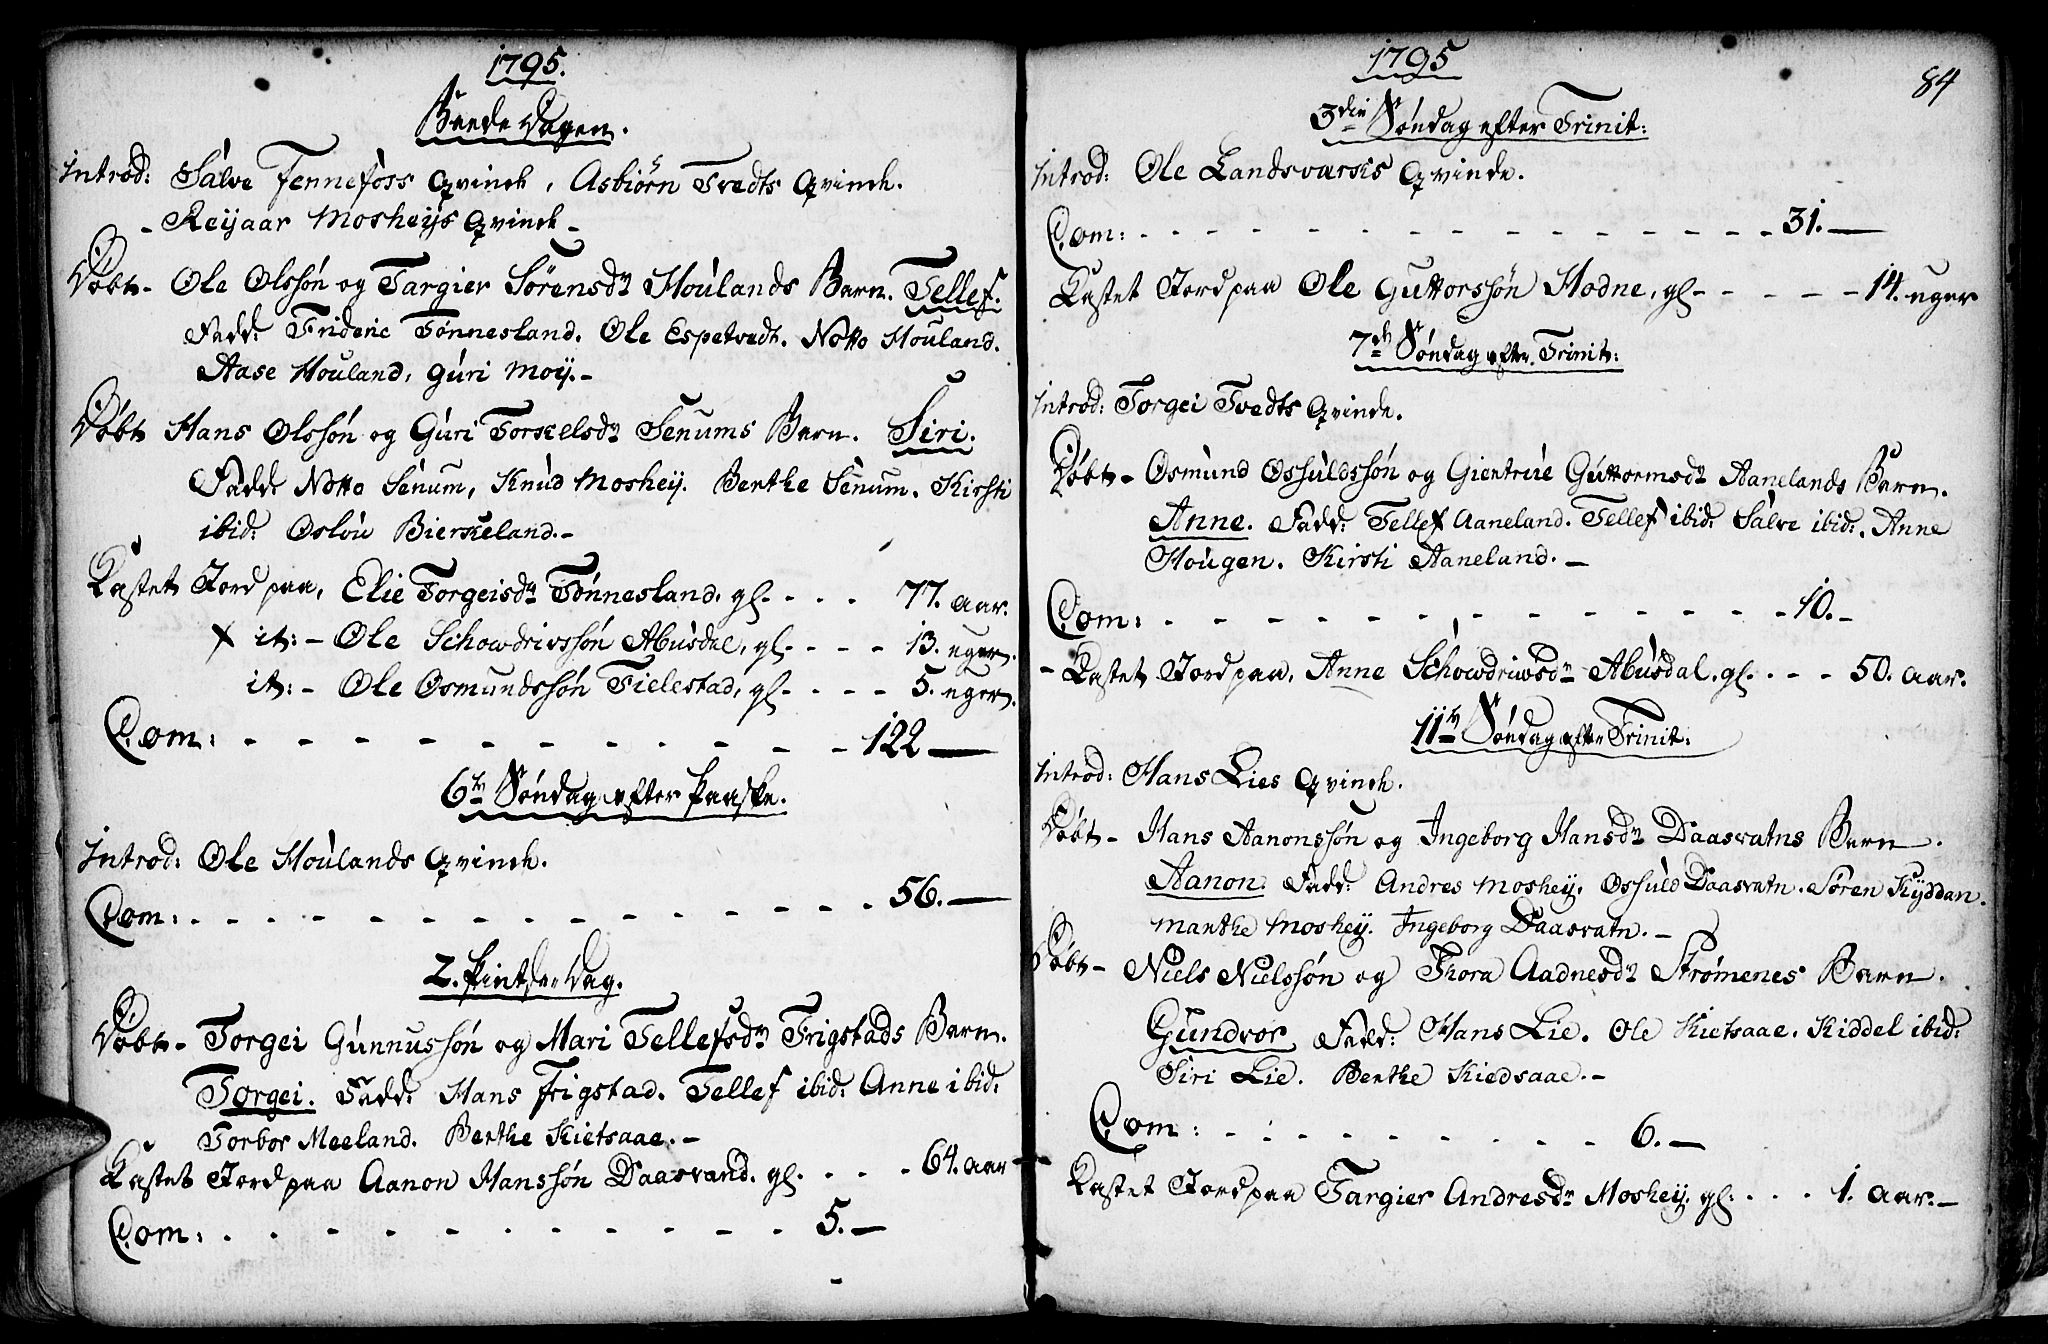 1795.
Beede Dagen.
Introd: Salve Fennefoss Qvinde, Asbiørn Tvedts Qvinde.
- Reijaar Mosheijs Qvinde -
Døbt - Ole Olssøn og Targier Sørensdr Houlands Barn. Tellef.
Fadd: Frideric Tønnesland. Ole Espetvedt. Notto Houland.
Aase Houland, Guri Moij. -
Døbt Hans Olssøn og Guri Torkelsdr Senums Barn. Siri.
Fadd: Notto Senum, Knud Moshey. Berthe Senum. Kirsti
ibid: Oslou Bierkeland. -
Kastet Jord paa, Elie Torgeisdr Tønnesland. gl. - - - 77. aar.
+ it: - Ole Schowdrivssøn Abusdal, gl. - - - 13. uger.
it: - Ole Osmundssøn Fielestad, gl. - - - 5. uger.
Com: - - - - - - - - - - - 122 —
6te Søndag efter Paaske.
Introd: Ole Houlands Qvinde.
Com: - - - - - - - - - - - - 56. —
2. Pintse Dag.
Døbt - Torgei Gunnussøn og Mari Tellefsdr Frigstads Barn.
Torgei. Fadd: Hans Frigstad. Tellef ibid: Anne ibid:
Torbor Meeland. Berthe Kietsaae. -
Kastet Jord paa Aanon Hanssøn Daasvand. gl. - - - 64. aar
Com: - - - - - - - - - - - 5. —
1795
84
3die Søndag efter Trinit:
Introd: Ole Landsværks Qvinde.
Com: - - - - - - - - - - - - 31. —
Kastet Jord paa Ole Guttorssøn Hodne, gl - - - - - 14. uger
7de Søndag efter Trinit:
Introd: Torgei Tvedts Qvinde.
Døbt - Osmund Ossuldssøn og Gientrue Guttormsdr Aanelands Barn.
Anne. Fadd: Tellef Aaneland. Tellef ibid: Salve ibid:. Anne
Hougen. Kirsti Aaneland. -
Com: - - - - - - - - - - - - 10. -
- Kastet Jord paa, Anne Schowdriwsdr Abusdal. gl. - - - 50. aar.
11te Søndag efter Trinit:
Introd: Hans Lies Qvinde.
Døbt - Hans Aanonssøn og Ingeborg Hansdr Daasvatns Barn.
Aanon. Fadd: Andres Moshey. Ossuld Daasvatn. Søren Kyddan.
Marthe Moshey. Ingeborg Daasvatn. -
Døbt - Niels Nielssøn og Thora Aadnesdr Strømenes Barn.
Gundvor. Fadd: Hans Lie. Ole Kietsaae. Kiddel ibid:
Siri Lie. Berthe Kiedsaae. -
Com: - - - - - - - - - 6. —
Kastet Jord paa Targier Andresdr Moshey. gl: - - - 1. aar. -